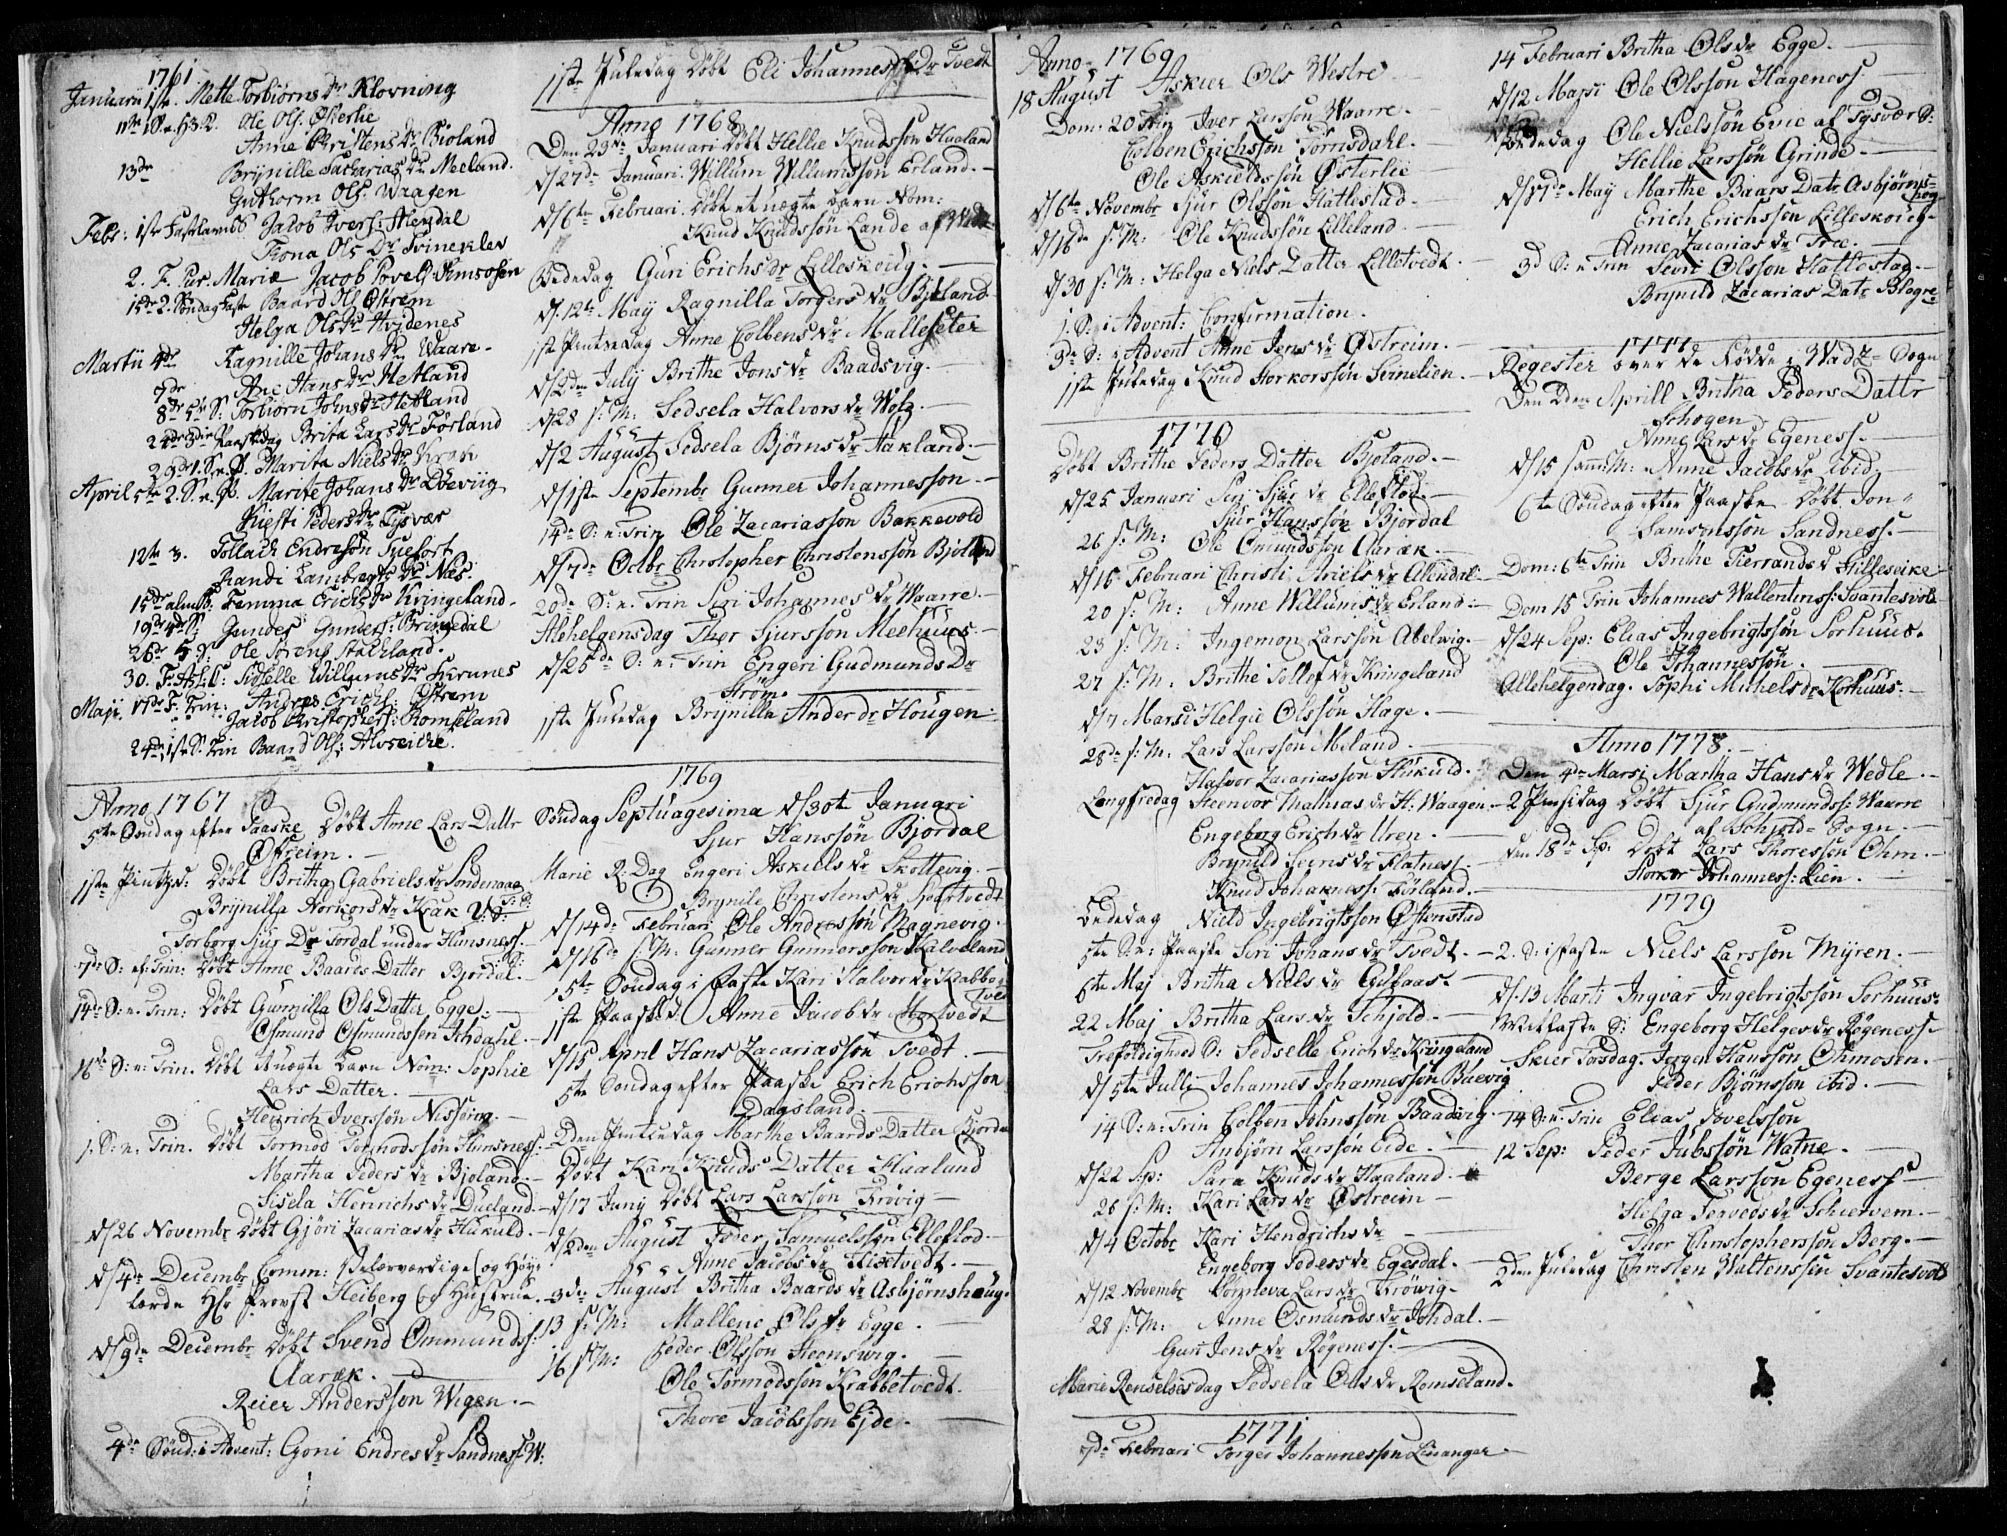 1761
Januarii 1ste. Mette Torbiørns Dr Klovning
Ole Ols. Østerlie
Anne Christens Dr Bioland
13de Brynille Sacharias Dr Meeland.
Guthorm Ols. Waagen
Febr: 1ste Fastelavns S Jacob Ivers: Alendal
Trona Ols Dr Svineklev
2. F. Pur. Mariæ Jacob Povels. Amsosen
15de 2. Søndag Faste Baard Ols Østrem
Helga Ols Dr Hvidenes
Martii 4de Ragnille Johans Dr Waare.
7de Ane Hans Dr Hetland
8de 5te S: Torbiørn Johns Dr Hetland
22de 3die Paaskedag Brita Lars Dr Førland
29de 1. S. e. P. Marita Niels Dr Krak
April 5te 2. S. e. P. Marite Johans Dr Døeviig
Kiesti Peders Dr Tysvær
12te 3. Tollach Endresøn Tuefort
Randi Lambregts Dr Næs.
15de alm. B. Temma Erichs Dr Kringeland.
19de 4de S: Gunder Gunders. Bringedal
26de 5. S: Ole Sørens Stachland.
30. F. As. C: Sidselle Willums Dr Hermnes
Maji. 17de F. Trin: Andres Erichs. Østrem
Jacob Christophers: Romseland
24de 1ste S. Trin Baard Ols: Alvseicke.
Anno 1767
5te Søndag efter Paaske Døbt Anne Lars Dattr
Østreim.
1ste Pintzd: Døbt Britha Gabriels dr Søndenaaa
Brynilla Storkors dr Krak V: S:
Torborg Siur Dr Tordal under Hunsness.
7de S: ef: Trin: Døbt Anne Baards Datter Bjordal.
14de S: e. Trin: Døbt Gunnilla Ols Datter Egge.
Osmund Osmundssøn Ihdahl.
16de S: e: Trin. Døbt et uægte Barn Nom: Sophie
Lars Datter.
Heinrich Iverssøn Nisseing.
1. S: e. Trin. Døbt Tormod Tormodssøn Hunsness:
Martha Peders dr Bjoland.
Sisela Henrichs dr Dueland.
d/26 Novembr Døbt Gjøri Zacarias dr Hukuld.
d/4de Decembr Comm: Velærværdige og Høy:
lærde Hr Provst Heiberg og Hustrue.
d/9de Decembr Døbt Svend Ommunds:
Aarek.
Reier Anderssøn Wigen.
4de Sønd: i Advent: Goni Endres dr Sandness W:
1ste Juledag Døbt Eli Johannes Dr Tvedt
Anno 1768
Den 23de Januari Døbt Hellie Knudssøn Haaland
d/27de Januari. Willum Willumssøn Erland.
d/6te Februari. Døbt et uægte Barn Nom:
Knud Knudssøn Lande af
Bededag Guri Erichs dr Lilleskoug.
d. 12te May Ragnilla Torgers dr Bjoland
1ste Pintzedag Anne Colbens dr Malleseter
d/2den July Brithe Jons dr Baadsvig.
d/28 s: M: Sedsela Halvors dr Wola
d/2 August Sedsela Bjørns dr Aakland.
d/1ste Septembr Gunner Johannessøn
14de S: e: Trin Ole Zacariassøn Bakkevold
d/7de Octbr Christopher Christenssøn Bjoland
20de S: e. Trin Siri Johannes dr Waarre.
Alehelgensdag Thor Sjurssøn Meehuus.
d/25de S: e: Trin Engeri Gudmunds Dr
Strøm.
1ste Juledag Brynilla Ander dr Hougen.
1769
Søndag Septuagesima d/30te Januari
Sjur Hanssøn Bjordal
Marie R: Dag Engeri Askiels dr Skottevig.
Brynile Christens dr Hjortvedt
d/14de Februari Ole Andressøn Magnevig.
d/16de s: M: Gunner Gunnerssøn Halveland
5te Søndag i Faste Kari Halvor dr Krabbe
tved
1ste Paaskd: Anne Jacob dr Mortvedt
d/15 April Hans Zacariassøn Tvedt.
5te Søndag efter Paaske Erich Erichssøn
Dagsland.
2den Pintzedag Marthe Baards Datter Bjorda
Døbt Kari Knuds Datter Haaland
d/17 Juny Døbt Lars Larssøn Frøvig
d/2den August Peder Samuelssøn Elleflod.
Anne Jacobs dr Fisetvedt.
3de August Britha Baards dr Asbjørnshoug.
13 s: M: Mallene Ols dr Egge.
16 s: M: Peder Olssøn Steensvig.
Ole Tormodssøn Krabbetvedt.
Thore Jacobssøn Ejde.
Anno 1769
18 August Askier Ols Westre
Dom: 20 Trin Iver Larssøn Waarre.
Colben Erichssøn Tornsdahl.
Ole Askieldssøn Østerlie
d/6te Novembr Sjur Olssøn Hatlestad.
d/16de s: M: Ole Knudssøn Lilleland.
d/30 s: M: Helga Niels Datter Lilletvedt.
1. S: i Advent: Confirmation.
3de S: i Advent Anne Jens dr Østreim.
1ste Juledag Knud Storkorssøn Semelien.
1770
Døbt Brithe Peders Datter Bjoland.
d/25 Januari Siri Sjur dr Elleflod.
Sjur Hanssøn Bjordal
26 s: M: Ole Omundssøn Aarek.
d/15 Februari Christi Ariels dr Alendal
20 s: M: Anne Willums dr Erland:
23 s: M: Ingemon Larssøn Abelwig.
27 s: M. Brithe Tollof dr Kringeland
d/7 Marsi Helgie Olssøn Hage.
28de s: M: Lars Larssøn Meland
Halvor Zacariassøn Hukuld.
Langfredag Steenvor Mathias dr H: Waagen
Engeborg Erich dr Uren.
Brynild Seens dr Flatness.
Knud Johanness: Førland.
Bededag Nield Ingebrigtssøn Østensted
5te S: e: Paaske Siri Johans dr Tvedt.
6te Maj Britha Niels dr Aufaas.
22 Maj Britha Lars dr Schjold.
Trefoldighed S: Sedselle Erich dr Kringeland
d/5te Julli Johannes Johannessøn Buevig
14 S: e: Trin Colben Johnssøn Baadsvig.
Anbjørn Larssøn Eide.
d/22 Sp: Sara Knuds dr Haaland.
26 s: M: Kari Lars dr Østreim
d/4 Octobr Kari Hendrichs dr
Engeborg Peders dr Egesdal.
d/12 Novembr Porneva Lars dr Frøwig.
28 s: M: Anne Osmunds dr Ishdal.
Guri Jens dr Røgeness.
Marie Renselses dag Sedsela Ols dr Romseland.
1771
7de Februari Torger Johannessøn Linanger
14 Februari Britha Ols dr Egge.
d/12 Marsi Ole Olssøn Hageness.
Bededag Ole Nielssøn Evie af Tysvær S:
Hellie Larssøn Grinde.
d/17de May Marthe Baars Datr Asbjørns=
houg
Erich Erichssøn Lilleskoug.
Anne Zacarias dr Tree.
3d S: e Trin Sevri Olssøn Hatlestag.
Brynild Zacarias Datr Blogre
1777
Regester over de Fødde i Wadz= Sogn
Den 2den Aprill Britha Peders Dattr
Schogen
Anne Lars dr Egeness.
d/15 samme M: Anne Jacobs dr ibid.
6te Søndag efter Paaske Døbt Jon=
Samsonssøn Sandness.
Dom: 6te Trin Brithe Fierrands d Hilleseike
Dom 15 Trin Johannes Wallentins: Svantesvold
d/24 Sep: Elias Ingebrigtssøn Sorhuus.
Ole Johannessøn.
Allehelgendag. Sophi Michels dr Korhuus:
Anno 1778.
Den 4de Marsi Martha Hans dr Wedle.
2 Pinsidag Døbt Sjur Gudmunds: Waarre
af Schjold= Sogn.
den 18de Sp: Døbt Lars Thoressøn Ohm.
Storkor Johanness: Lien.
1779
2. S: i Faste Niels Larssøn Myren.
d. 13 Marti Ingvar Ingebrigtssøn Sorhuus.
Mitfaste S: Engeborg Helges dr Røgeness.
Skier Torsdag. Jørgen Hanssøn Ohmosen.
Peder Bjørnssøn ibid.
14 S: e: Trin Elias Povelssøn
12 Sep: Peder Jubssøn Watne.
Berge Larssøn Egeness
Helga Torveds dr Schiervem.
Thor Christopherssøn Berg.
2den Juledag Christen Waltenssøn Svantesvold